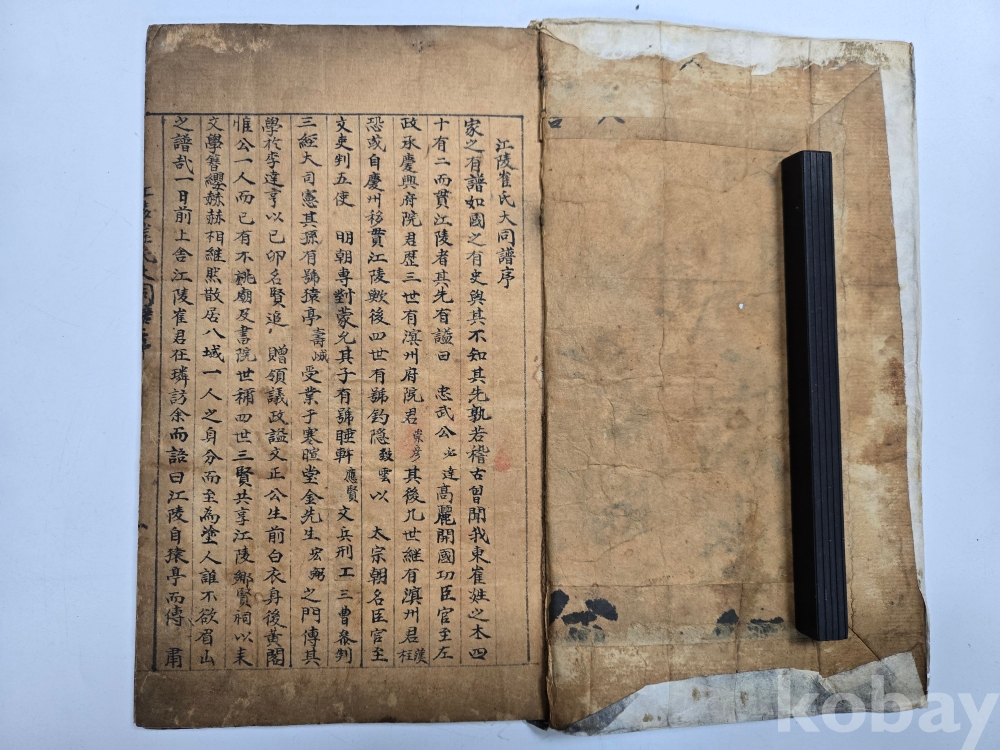 江陵崔氏大同譜序
家之有譜如國之有史與其不知其先孰若稽古曾聞我東崔姓之本四
十有二而貫江陵者其先有謚曰 忠武公必達高麗開國功臣官至左
政丞慶興府院君歷三世有濵州府院君崇彦其後凡世継有濵州君漢柱
恐或自慶州移貫江陵歟後四世有號釣隐致雲以 太宗朝名臣官至
文吏判五使 明朝専對蒙允其子有號睡軒應賢文兵刑工三曹叅判
三經大司憲其孫有號猿亭壽峸受業于寒暄堂金先生宏弼之門傳其
學於李達亨以己卯名賢追 贈領議政謚文正公生前白衣身後黄閣
惟公一人而已有不祧廟及書院世稱四世三賢共享江陵鄉賢祠以来
文學簪纓赫赫相継然散居八域一人之身分而至為塗人誰不欲眉山
之譜哉一日前上舍江陵崔君在璘訪余而語曰江陵自猿亭而傳 肅
kobay